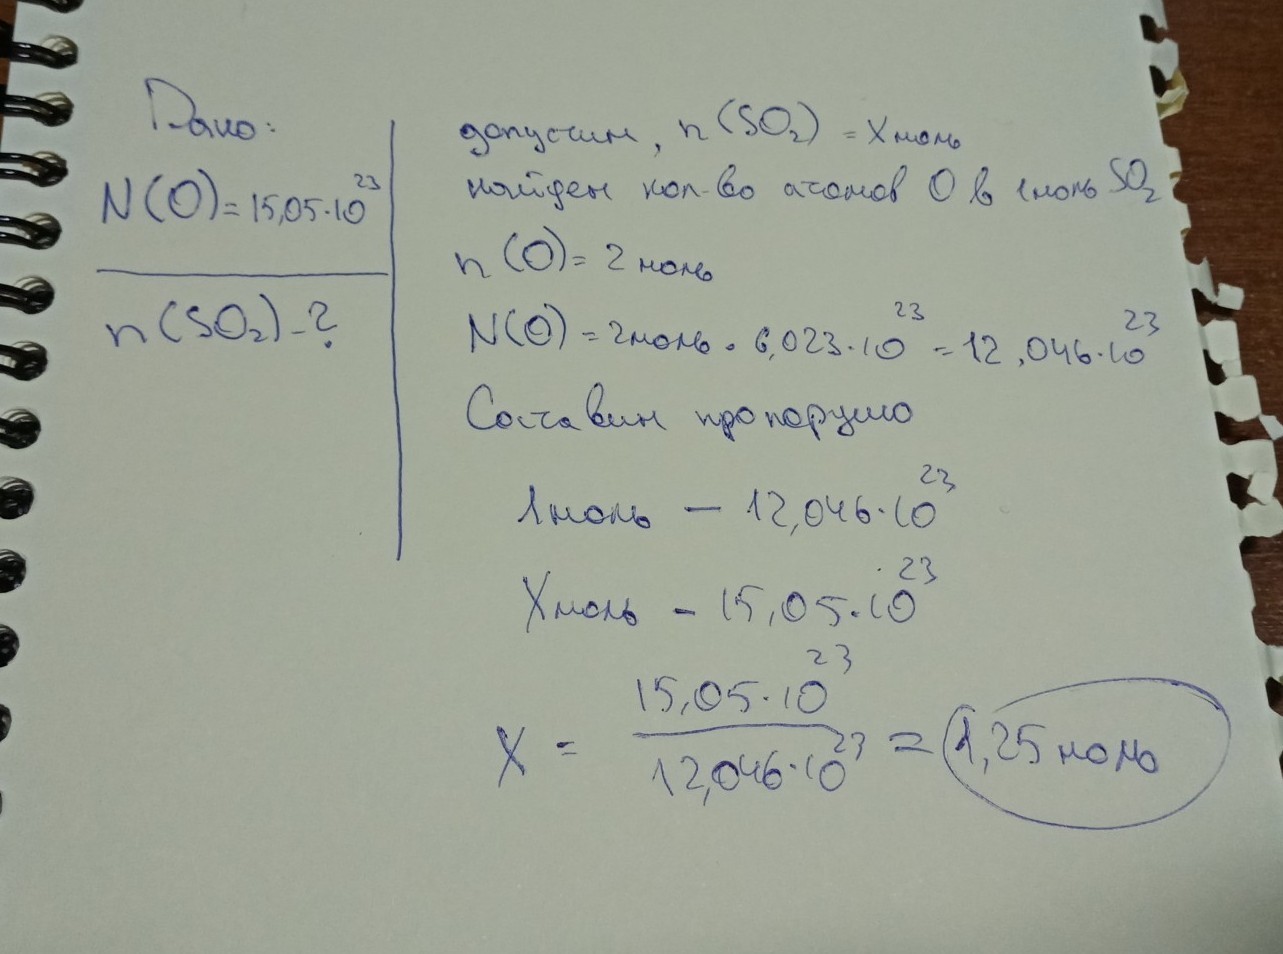 Дано:
N(O)=15,05·10²³
n(SO₂)-?
допустим, n(SO₂) = X моль
найдем кол-во атомов O в 1моль SO₂
n(O)= 2 моль
N(O) = 2моль · 6,023·10²³ = 12,046·10²³
Составим пропорцию
1моль — 12,046·10²³
X моль - 15,05·10²³
X = 15,05·10²³ / 12,046·10²³ = 1,25 моль